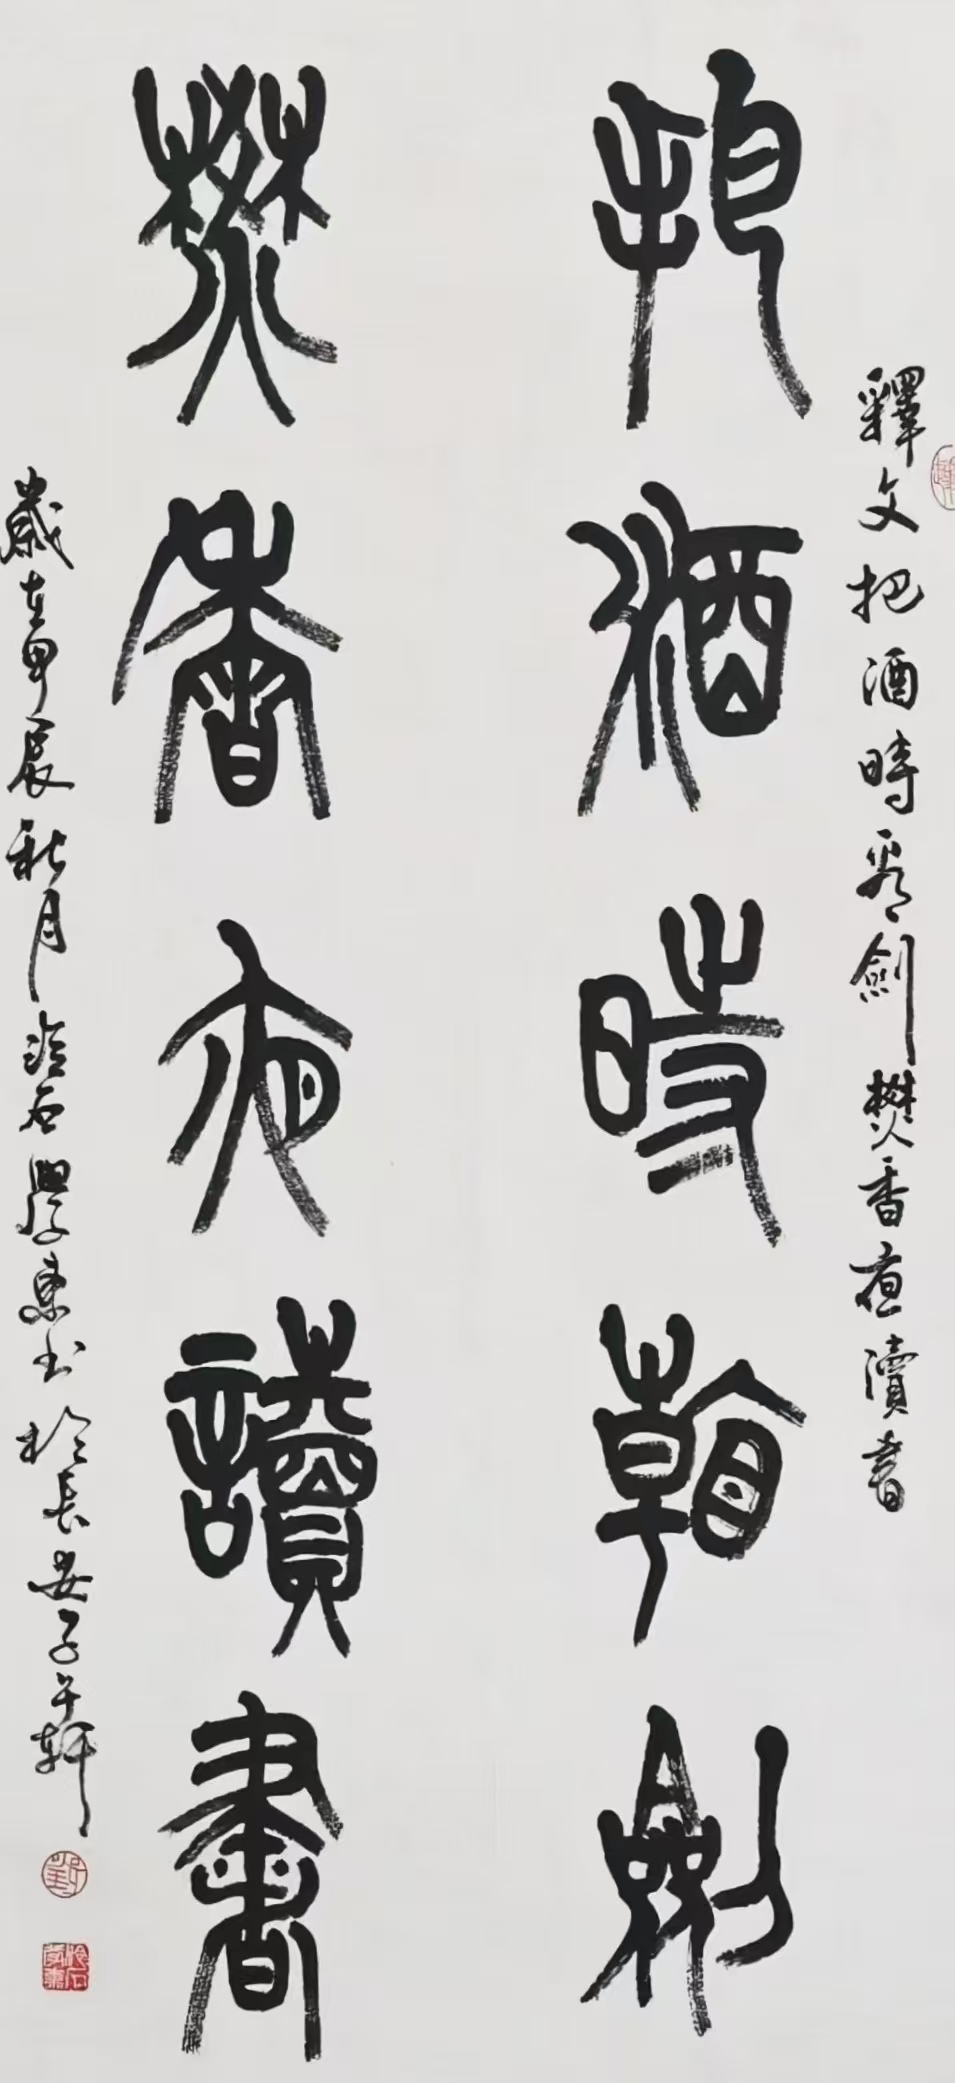 釋文把酒時看劍燓香夜讀書
把酒時看劍
燓香夜讀書
歲在甲辰秋月冷石學東書於長安子午軒